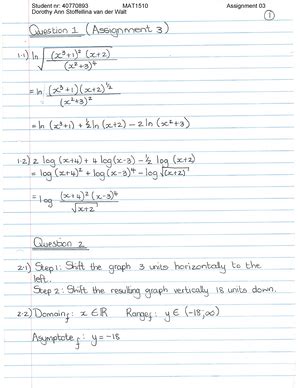 Student nr: 40770893 MAT1510 Assignment 03
Dorothy Ann Stoffellina van der Walt
1
Question 1 (Assignment 3)
1.1) ln √((x³+1)² (x+2) / (x²+3)⁴)
= ln (x³+1)(x+2)^½ / (x²+3)²
= ln (x³+1) + ½ ln (x+2) − 2 ln (x²+3)
1.2) 2 log (x+4) + 4 log (x-3) − ½ log (x+2)
= log (x+4)² + log (x-3)⁴ − log √(x+2)
= log (x+4)² (x-3)⁴ / √(x+2)
Question 2
2.1) Step 1: Shift the graph 3 units horizontally to the
left.
Step 2: Shift the resulting graph vertically 18 units down.
2.2) Domain f: x ∈ ℝ Range f: y ∈ (-18,∞)
Asymptote f: y = -18